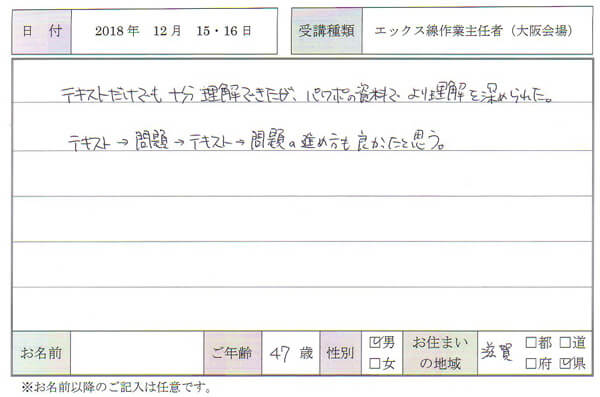 日 付 2018年 12月 15・16日 受講種類 エックス線作業主任者（大阪会場）
テキストだけでも十分理解できたが、パワポの資料でより理解を深められた。
テキスト→問題→テキスト→問題の進め方も良かったと思う。
お名前 ご年齢 47歳 性別 ☑男 □女 お住まいの地域 滋賀 □都 □道 □府 ☑県
※お名前以降のご記入は任意です。